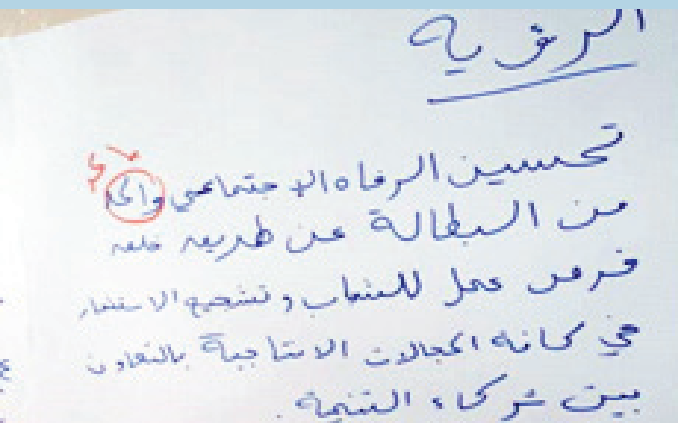 الرؤية
تحسين الرفاه الاجتماعي والحد
من البطالة عن طريق خلق
فرص عمل للشباب وتشجيع الاستثمار
في كافة المجالات الانتاجية بالتعاون
بين شركاء التنمية.